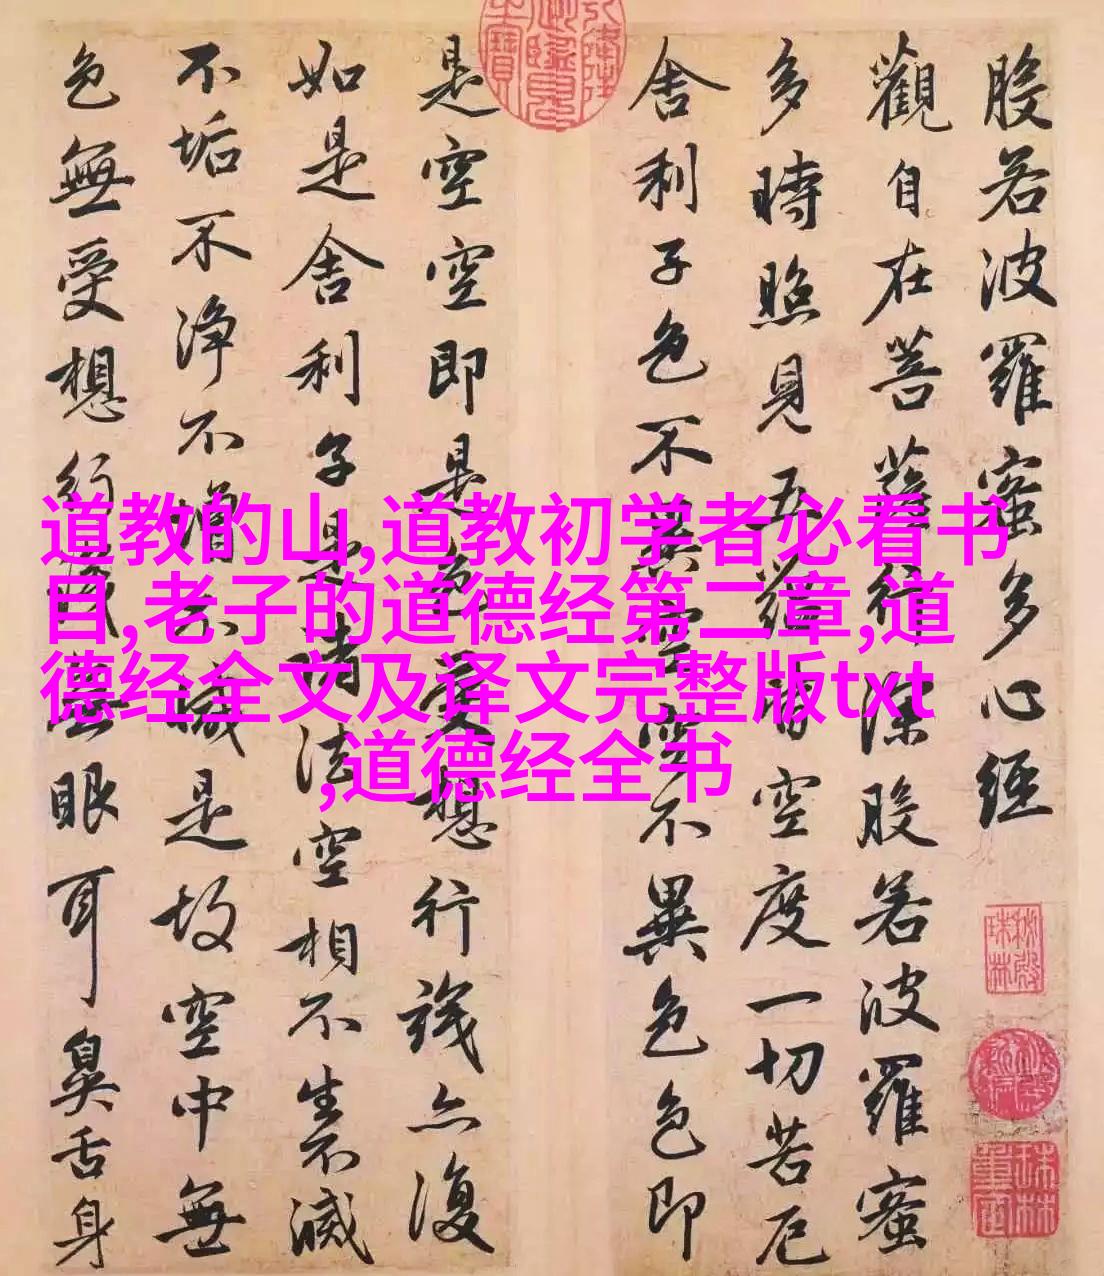 道教的山,道教初学者必看书
目,老子的道德经第二章,道
德经全文及译文完整版txt
,道德经全书
般若波羅蜜多心經
觀自在菩薩行深般若波羅蜜
多時照見五蘊皆空度一切苦厄
舍利子色不異空空不異色色即
是空空即是色受想行識亦復
如是舍利子是諸法空相不生不滅
不垢不淨不增不減是故空中無
色無受想行識無眼耳鼻舌身
秘殿珠林
珠林重定